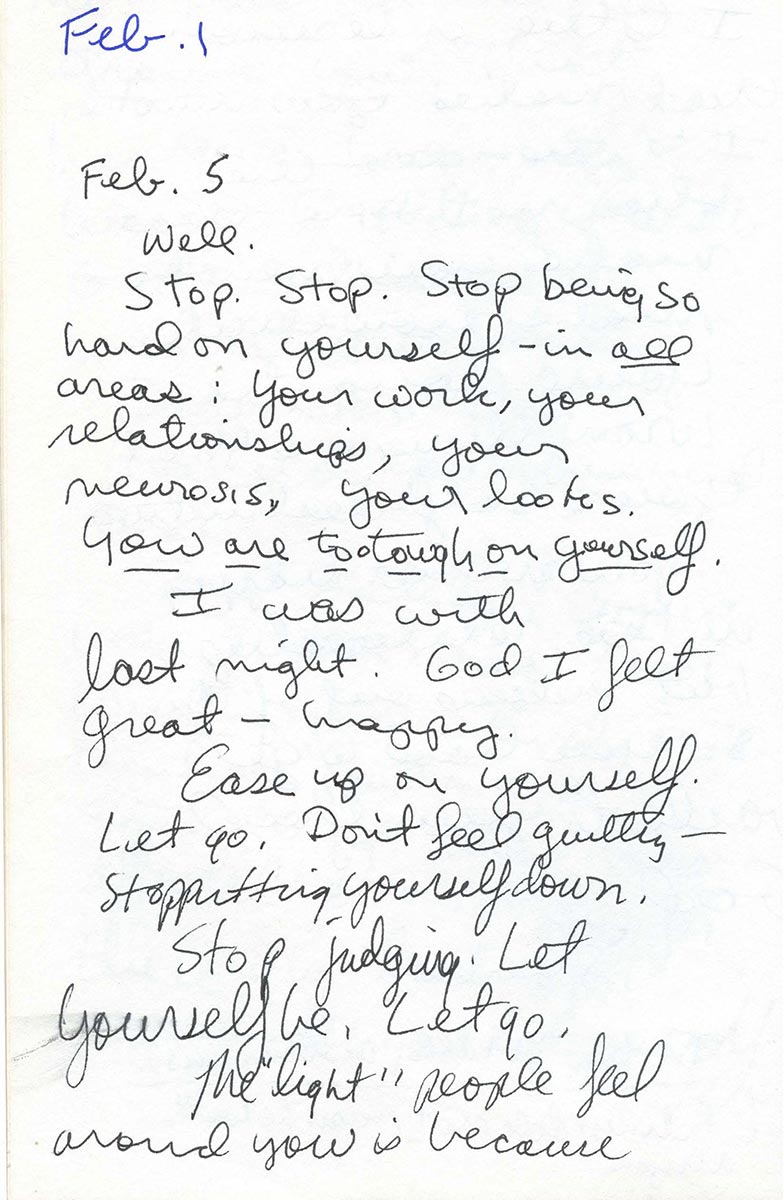 Feb. 1
Feb. 5
Well.
Stop. Stop. Stop being so
hard on yourself - in all
areas: Your work, your
relationships, your
neurosis, your looks.
You are too tough on yourself.
I was with
last night. God I felt
great - happy.
Ease up on yourself.
Let go. Don't feel guilty -
Stop putting yourself down.
Stop judging. Let
yourself be. Let go.
The "light" people feel
around you is because